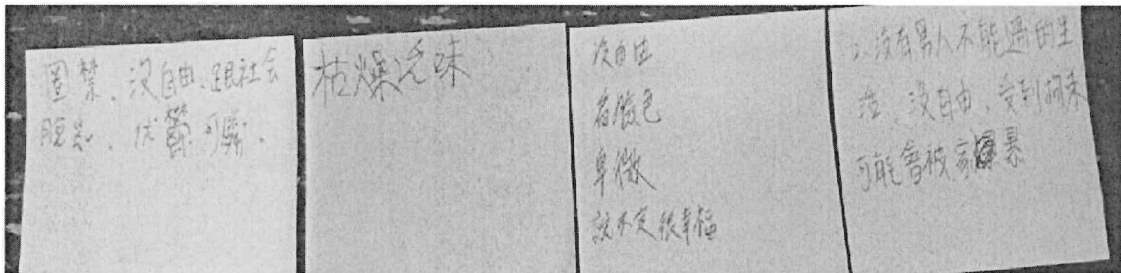 圈禁、沒自由、跟社會
脫離、憂鬱可憐、
枯燥乏味
沒自由
看臉色
卑微
說不定很幸福
2.沒有男人不能過的生
活、沒自由、受到拘束
可能會被家暴